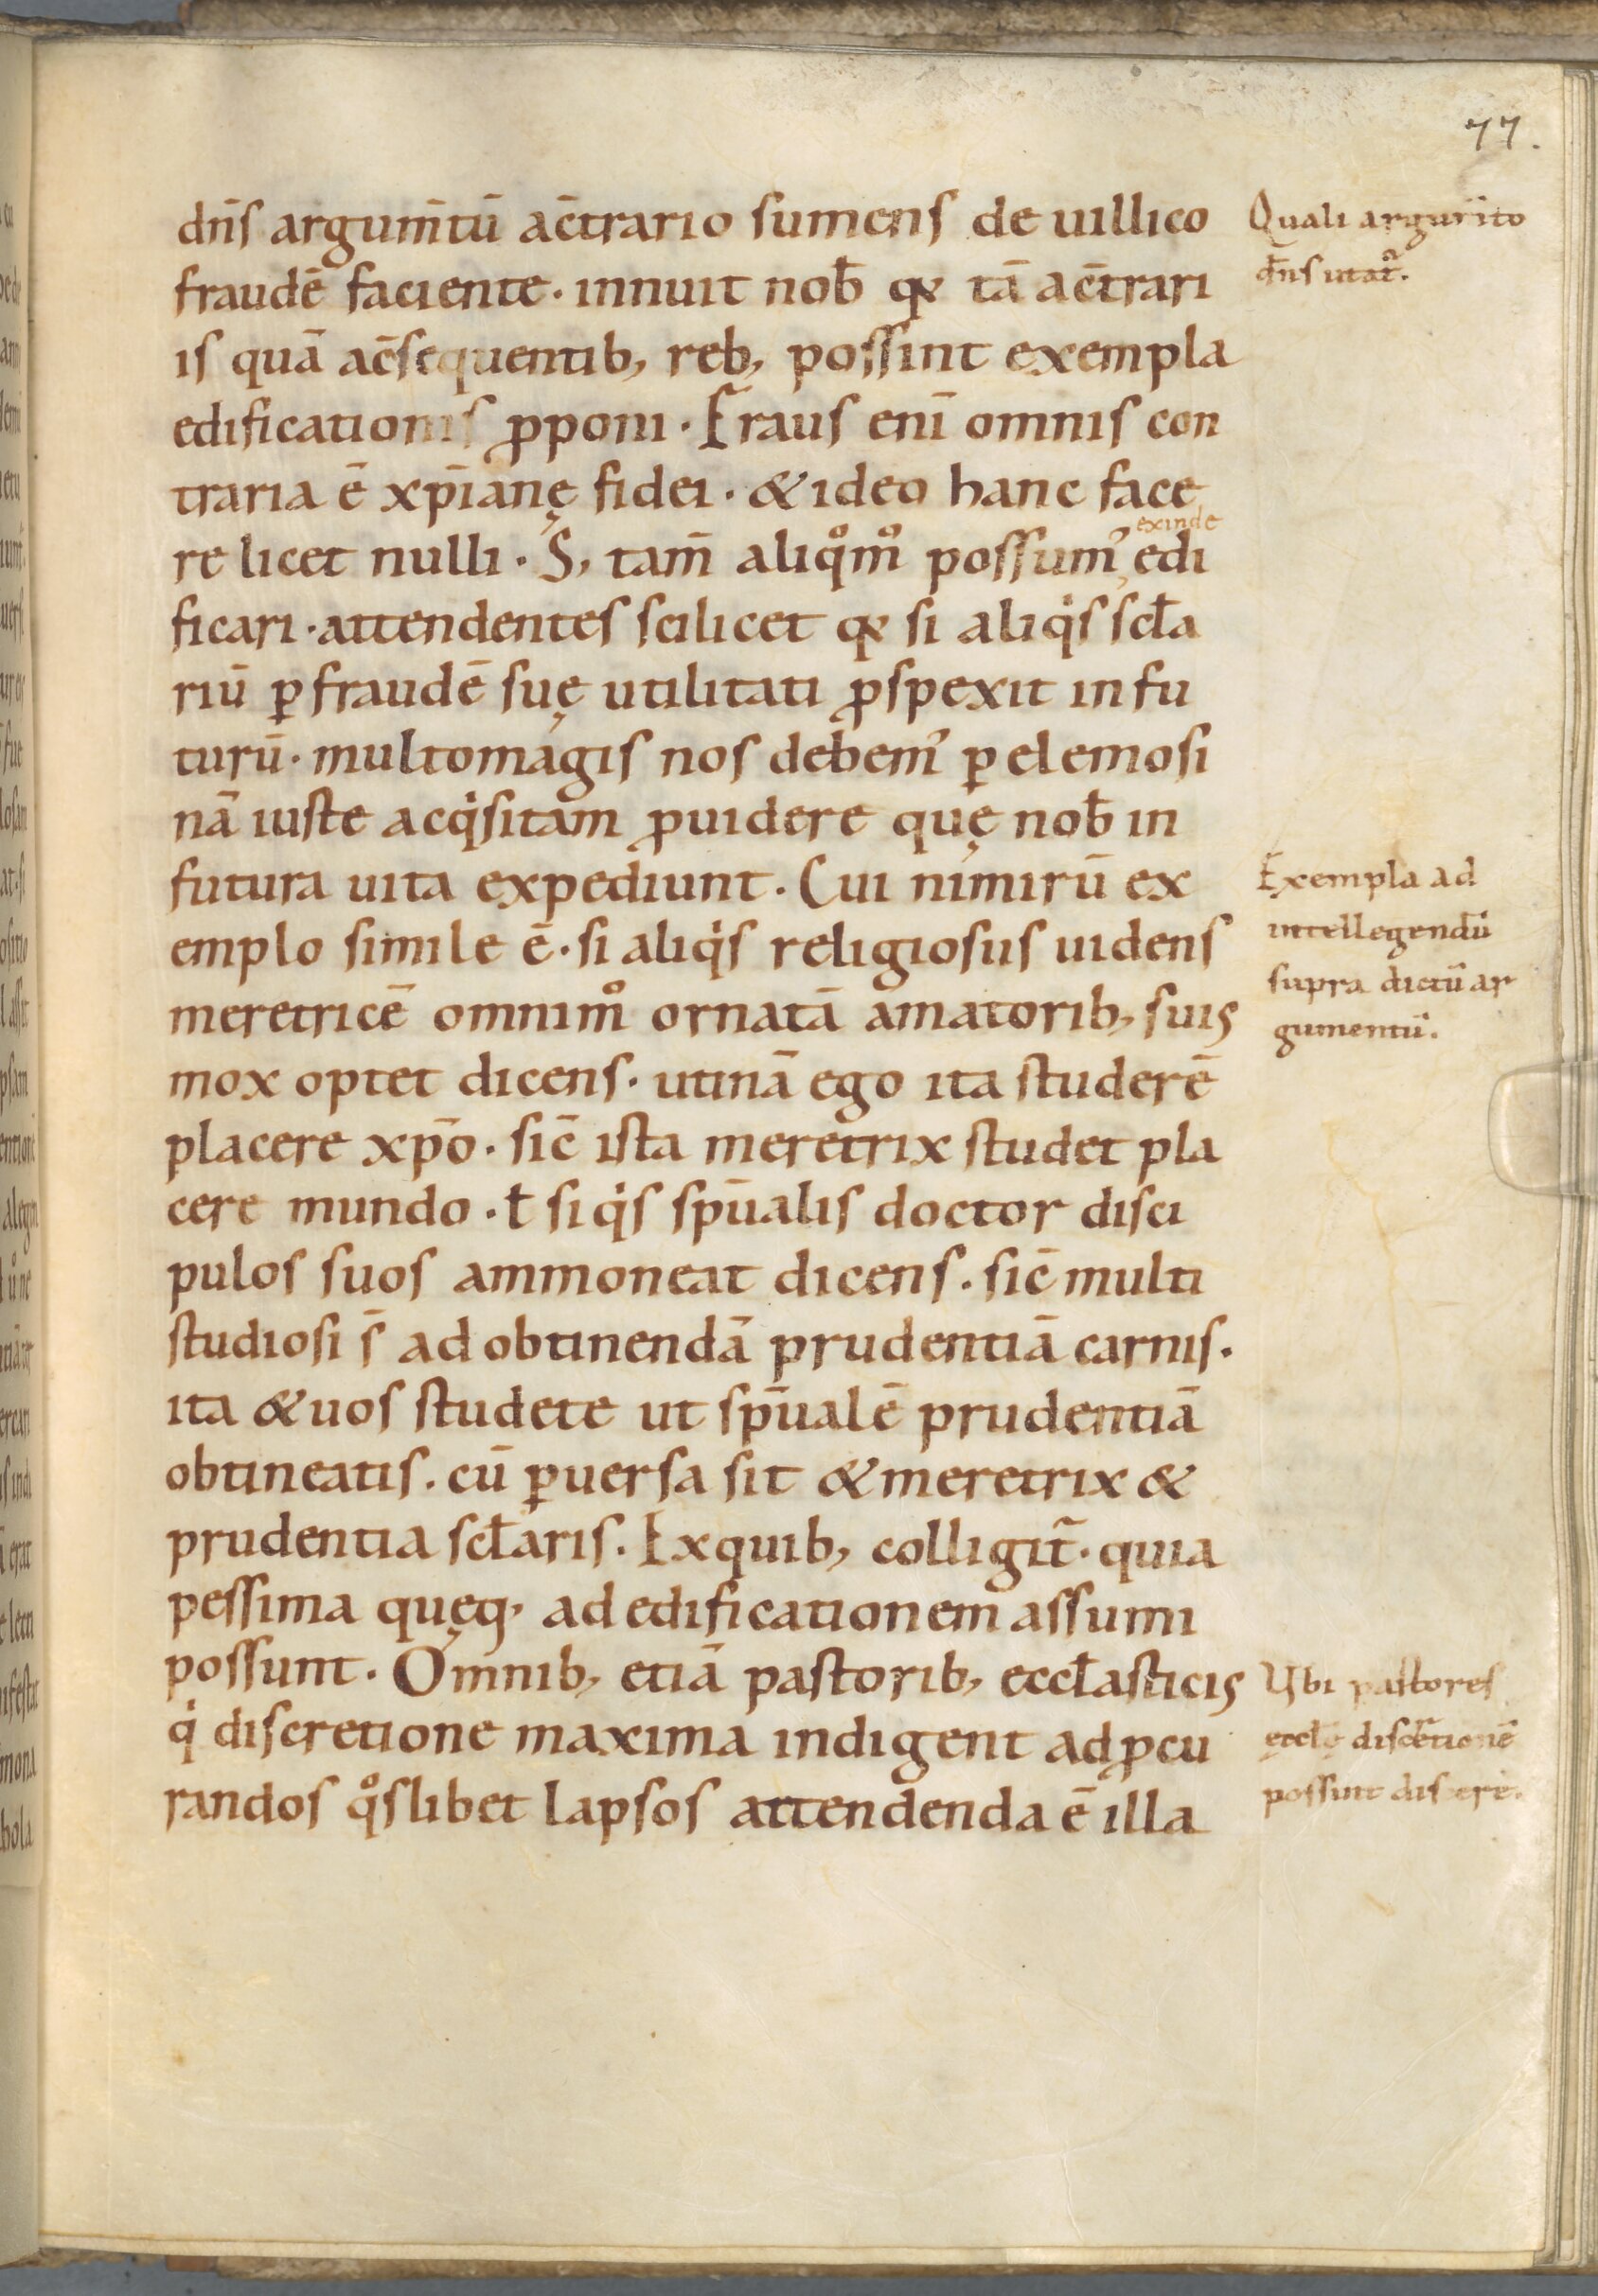 77.
dn̄s argum̄tū ac̄trario sumens de uillico
fraudē faciente · innuit nob̄ qđ tā ac̄trari
is quā ac̄sequentib, reb, possint exempla
edificationis ꝓponi · Fraus enī omnis con
traria ē xp̄ianę fidei · & ideo hanc face
exinde
re licet nulli · S, tam̄ aliqͦmͦ possum᾽, edi
ficari · attendentes scilicet qđ si aliqⁱs scła
riū ꝑ fraudē suę utilitati ꝓspexit in fu
turū · multomagis nos debem᾽ ꝑ elemosi
nā iuste acqⁱsitam ꝓuidere quę nob̄ in
futura uita expediunt · Cui nimirū ex
emplo simile ē · si aliqⁱs religiosus uidens
meretricē omnimͦ ornatā amatorib, suis
mox optet dicens · utinā ego ita studerē
placere xp̄o · sic̄ ista meretrix studet pla
cere mundo · ł siqⁱs sp̄ualis doctor disci
pulos suos ammoneat dicens · sic̄ multi
studiosi s̄ ad obtinendā prudentiā carnis ·
ita & uos studete ut sp̄ualē prudentiā
obtineatis · cū ꝑuersa sit & meretrix &
prudentia scłaris · Ex quib, colligit̄ · quia
pessima quęq, ad edificationem assumi
possunt · Omnib, etiā pastorib, eccłasticis
qⁱ discretione maxima indigent ad ꝓcu
randos qͦslibet lapsos attendenda ē illa
Quali argum̄to
dn̄s utat᷑.
Exempla ad
intellegendū
supra dictū ar
gumentū.
Ubi pastores
ęccłę discretionē
possint discere.